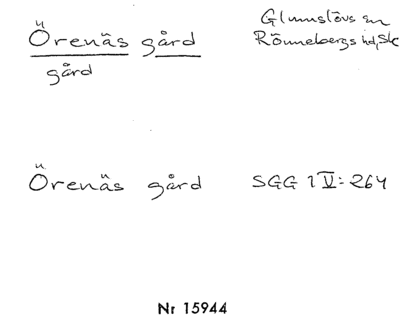 Örenäs gård
gård
Glumslövs sn
Rönnebergs hd, Sk
Örenäs gård
SGG 1 V: 264
Nr 15944